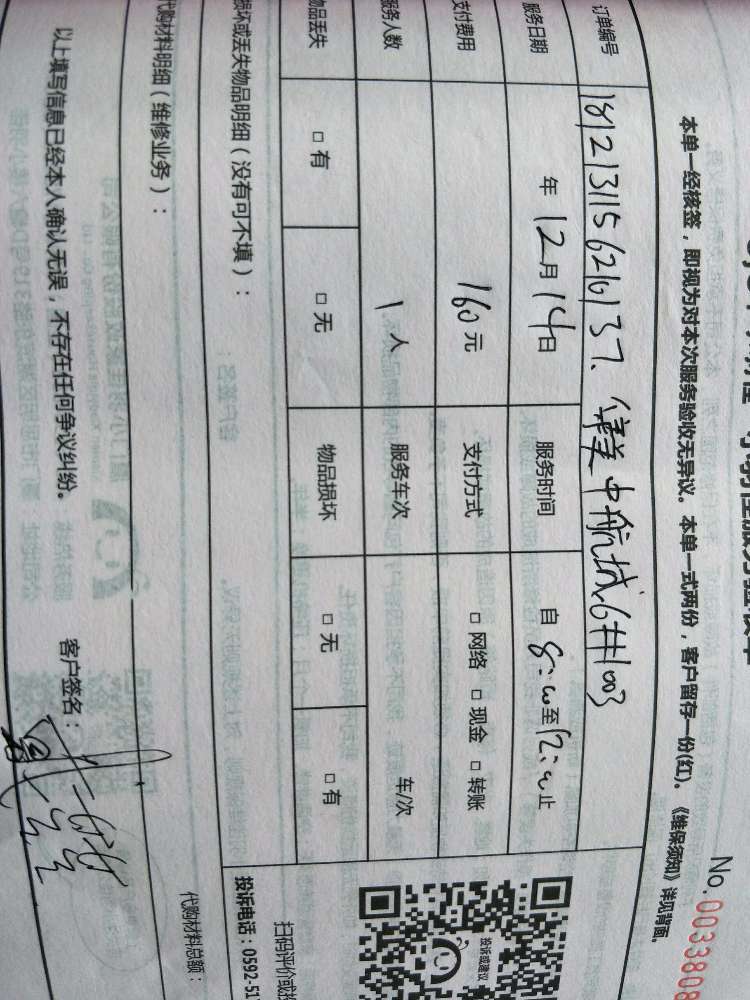 No.0033808
本单一经核签，即视为对本次服务验收无异议。本单一式两份，客户留存一份(红)。《维保须知》详见背面。
订单编号 1812131156210137、 中航城6#1003
服务日期 年12月14日 服务时间 自8:00至12:00止
支付费用 160元 支付方式 □网络 □现金 □转账
服务人数 1人 服务车次 车/次
物品丢失 □有 □无 物品损坏 □无 □有
损坏或丢失物品明细（没有可不填）：
投诉或建议
扫码评价或投
投诉电话：0592-51
代购材料明细（维修业务）：
代购材料总额：
以上填写信息已经本人确认无误，不存在任何争议纠纷。
客户签名：